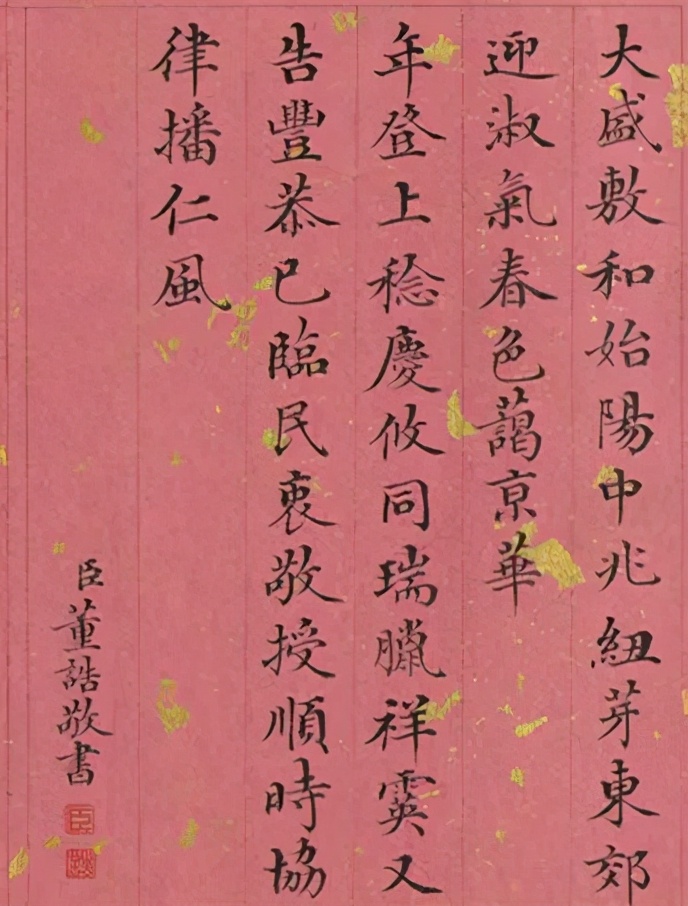 大盛敷和始陽中兆紐芽東郊
迎淑氣春色藹京華
年登上稔慶攸同瑞臘祥霙又
告豐恭已臨民衷敬授順時協
律播仁風
臣董誥敬書
臣